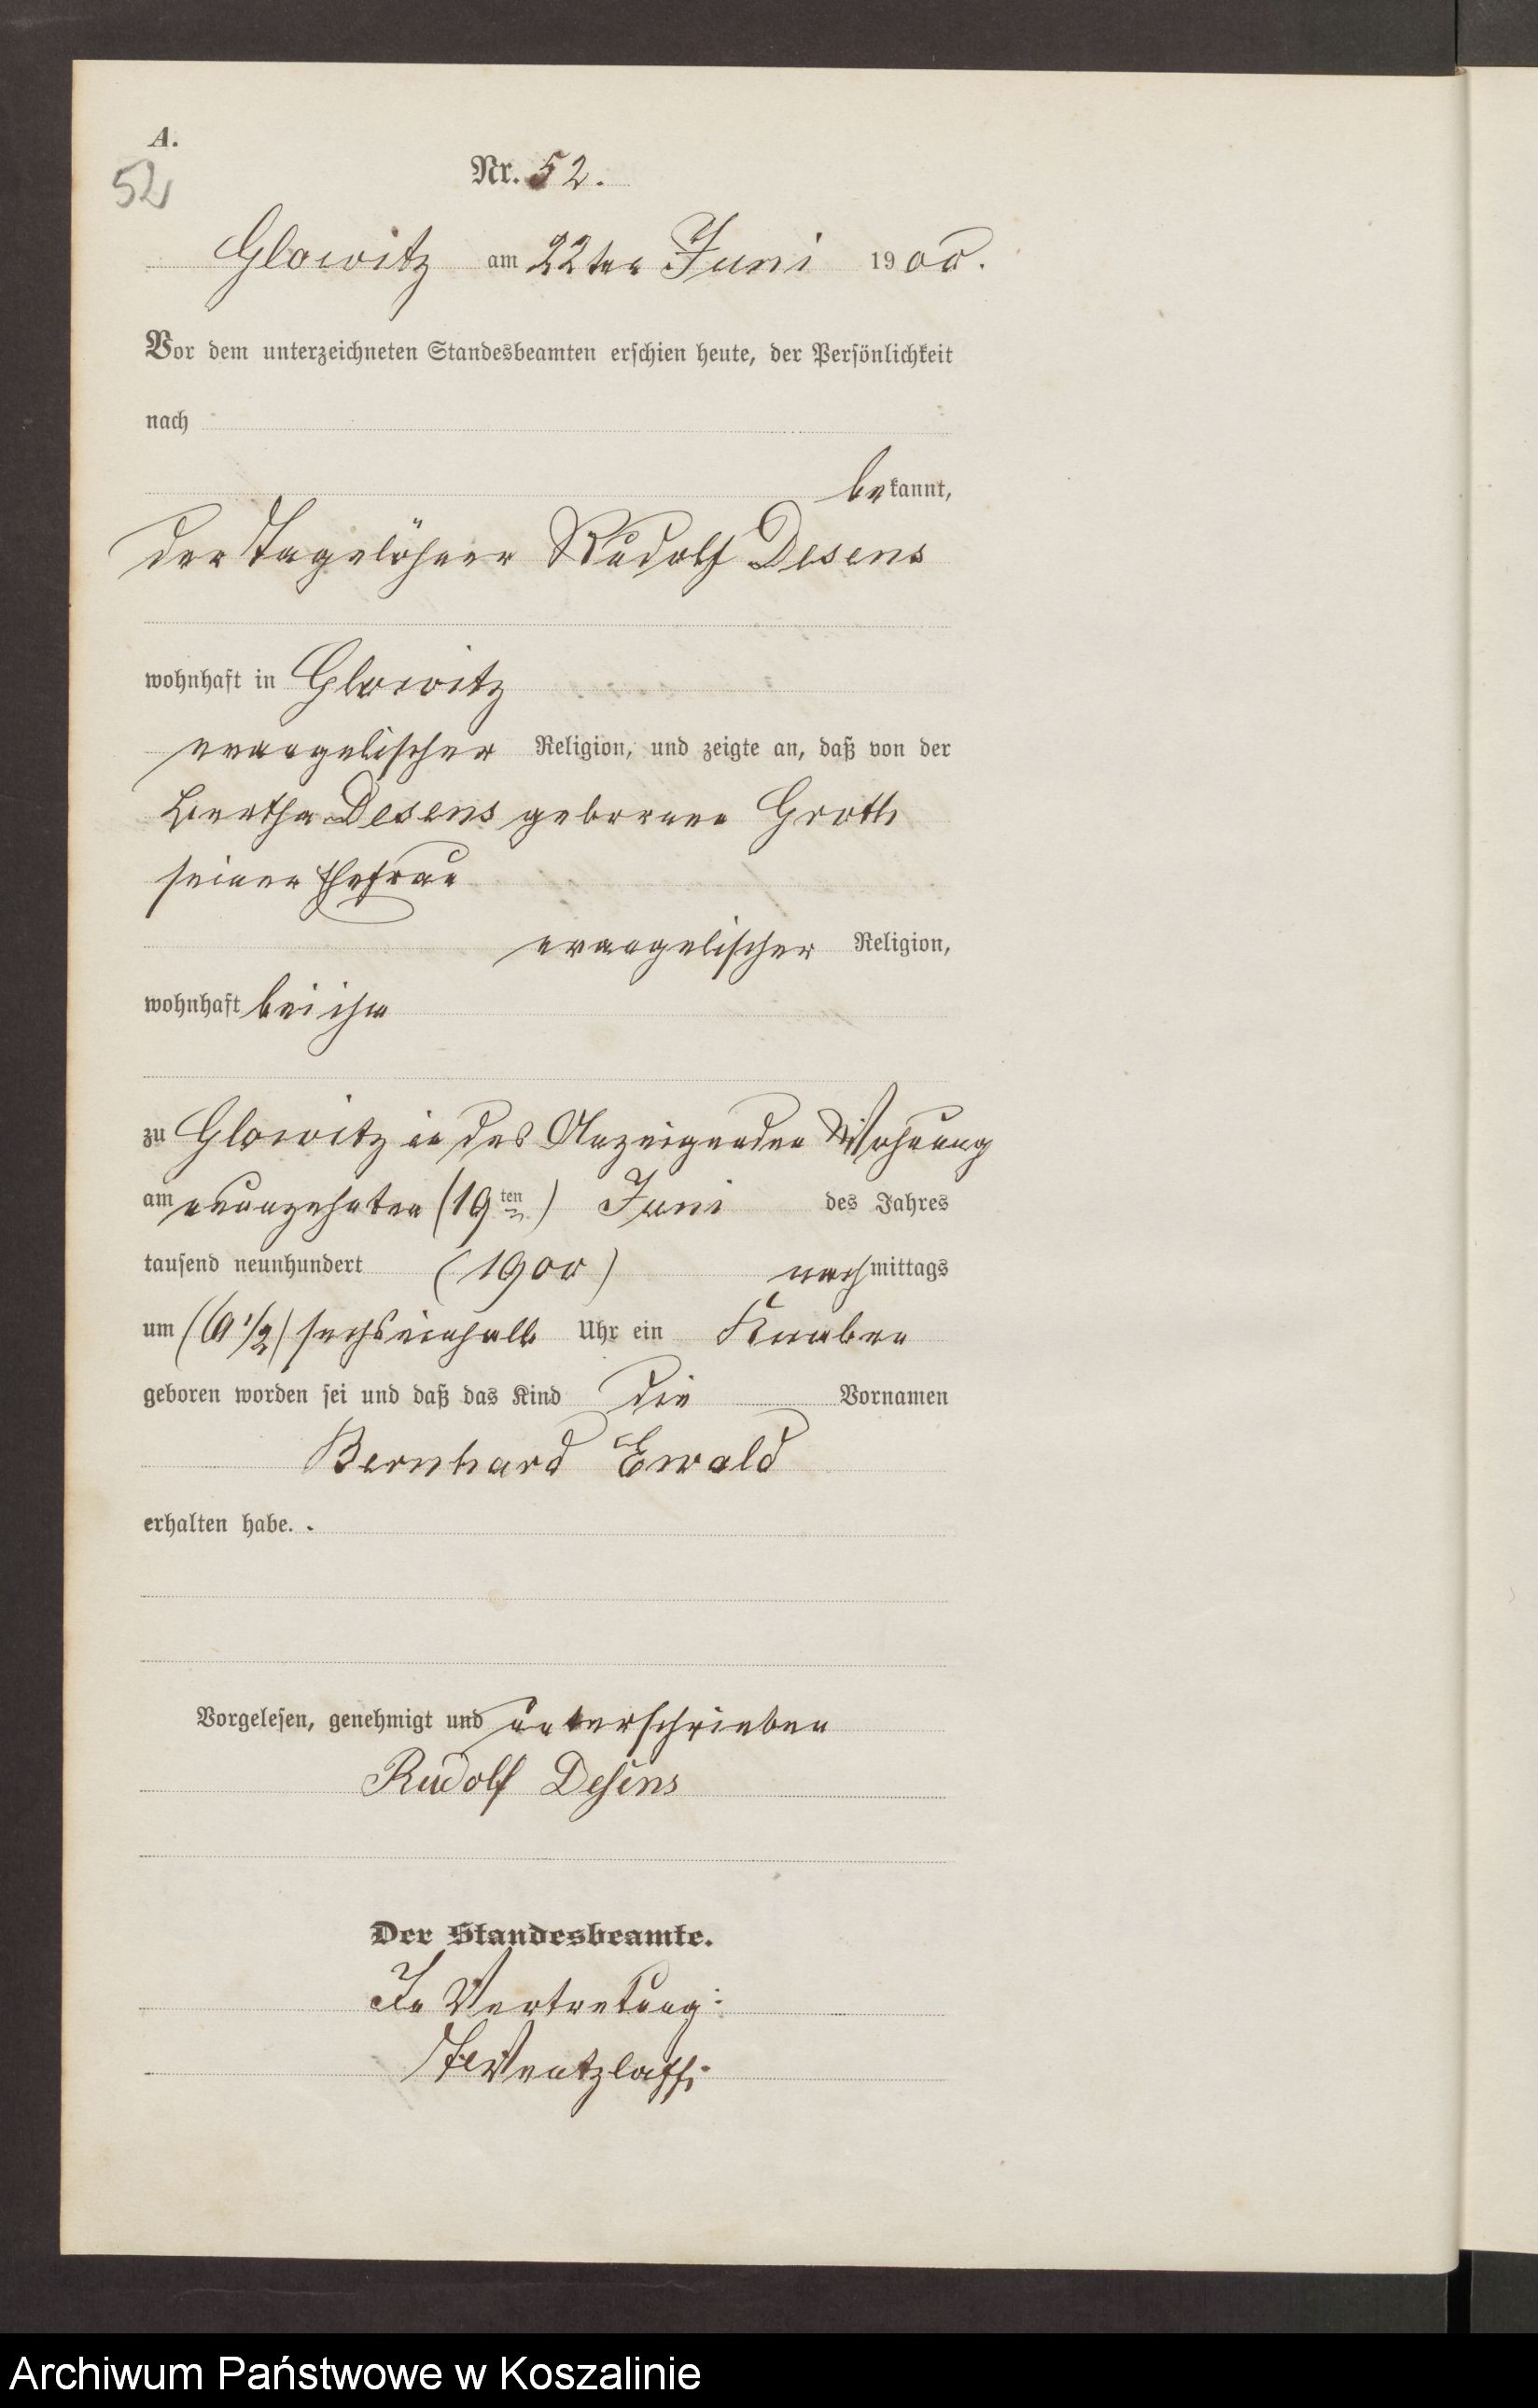 A.
52
Nr. 52.
Glowitz am 22ten Juni 1900.
Vor dem unterzeichneten Standesbeamten erschien heute, der Persönlichkeit
nach
bekannt,
der Tagelöhner Rudolf Desens
wohnhaft in Glowitz
evangelischer Religion, und zeigte an, daß von der
Bertha Desens geborenen Groth
seiner Ehefrau
evangelischer Religion,
wohnhaft bei ihm
zu Glowitz in des Anzeigenden Wohnung
am neunzehnten (19ten) Juni des Jahres
tausend neunhundert (1900) nachmittags
um (6 1/2) sechseinhalb Uhr ein Knaben
geboren worden sei und daß das Kind die Vornamen
Bernhard Ewald
erhalten habe. .
Vorgelesen, genehmigt und unterschrieben
Rudolf Desens
Der Standesbeamte.
In Vertretung:
Wentzlaff.
Archiwum Państwowe w Koszalinie